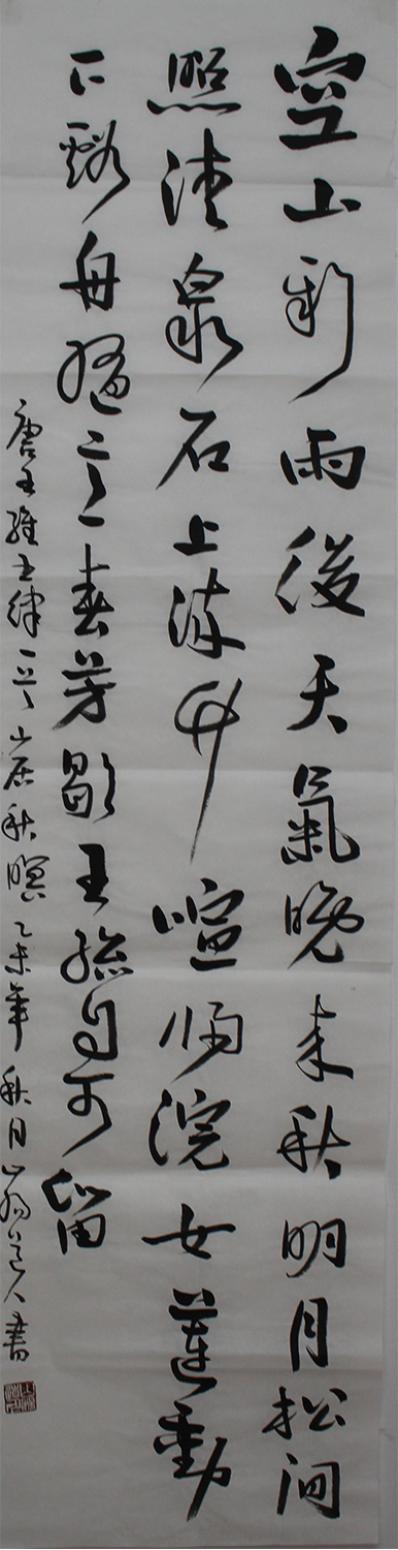 空山新雨後天氣晚来秋明月松間
照清泉石上流竹喧歸浣女蓮動
下舟隨意春芳歇王孫自可留
唐王維五律一首山居秋暝乙未年秋月山道人書